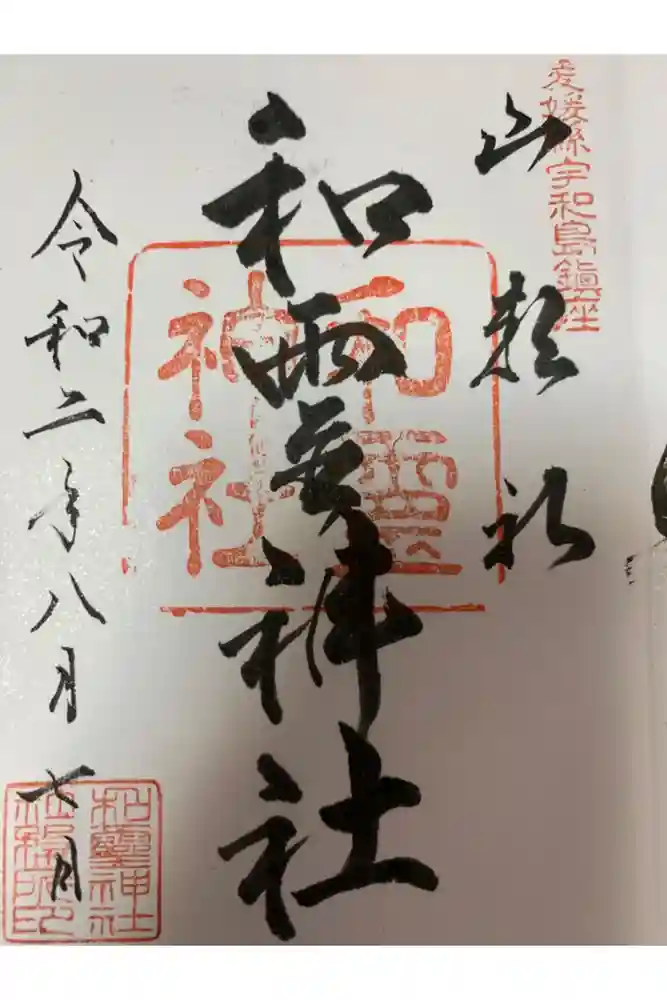 愛媛縣宇和島鎮座
山頼
和霊神社
和霊神社
令和二年八月七月
和靈神社
社務所印